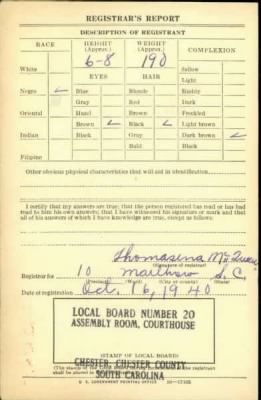 REGISTRAR'S REPORT
DESCRIPTION OF REGISTRANT
RACE HEIGHT (Approx.) WEIGHT (Approx.) COMPLEXION
6-8 190
White Sallow
EYES HAIR Light
Negro ✓ Blue Blonde Ruddy
Gray Red Dark
Oriental Hazel Brown Freckled
Brown ✓ Black ✓ Light brown
Indian Black Gray Dark brown ✓
Bald Black
Filipino
Other obvious physical characteristics that will aid in identification
I certify that my answers are true; that the person registered has read or has had
read to him his own answers; that I have witnessed his signature or mark and that
all of his answers of which I have knowledge are true, except as follows:
Thomasina
(Signature of registrar)
Registrar for 10 S. C.
Date of registration Oct. 16, 1940
LOCAL BOARD NUMBER 20
ASSEMBLY ROOM, COURTHOUSE
(STAMP OF LOCAL BOARD)
CHESTER, CHESTER COUNTY
SOUTH CAROLINA
U. S. GOVERNMENT PRINTING OFFICE